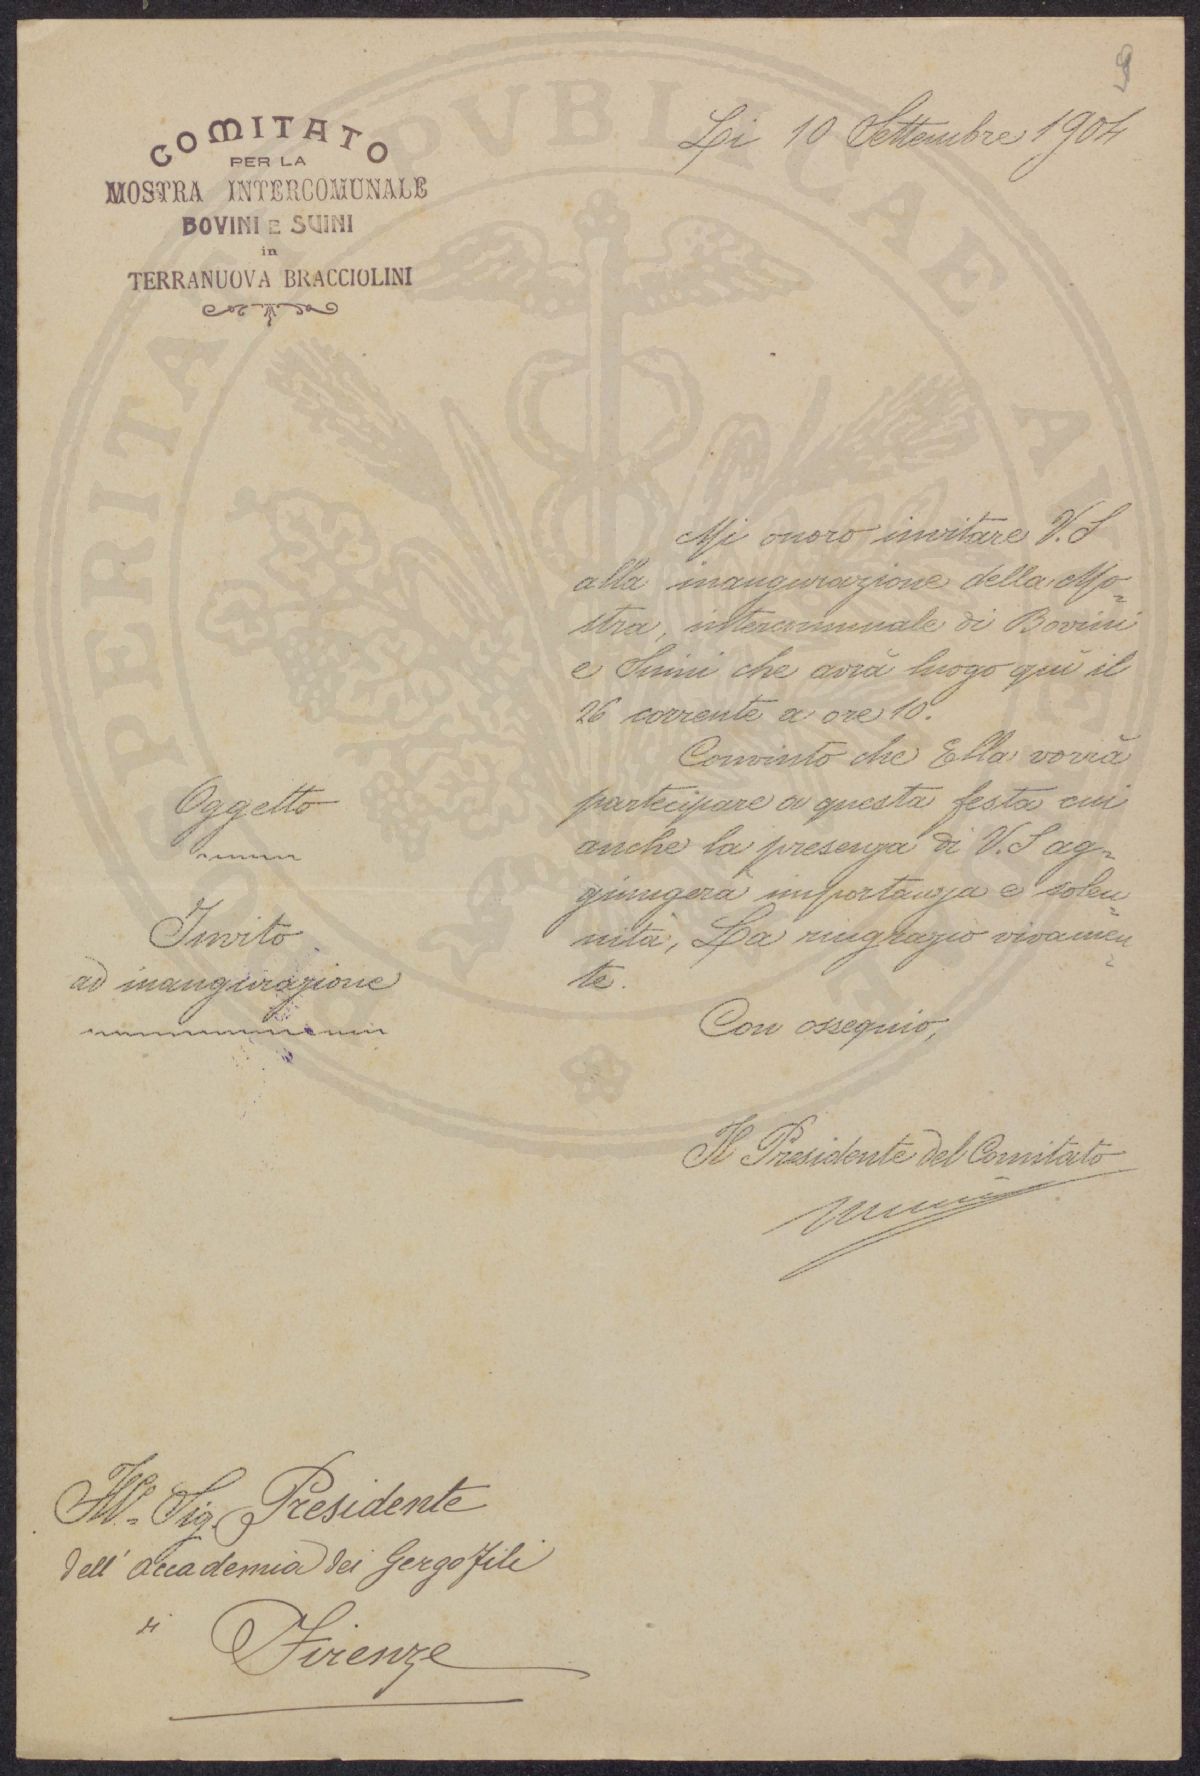 9
COMITATO
PER LA
MOSTRA INTERCOMUNALE
BOVINI E SUINI
in
TERRANUOVA BRACCIOLINI
Li 10 Settembre 1904
Mi onoro invitare V. S
alla inaugurazione della Mo=
stra, intercomunale di Bovini
e Suini che avrà luogo quì il
26 corrente a ore 10.
Convinto che Ella vorrà
partecipare a questa festa cui
anche la presenza di V. S ag=
giungerà importanza e solen=
nità, La ringrazio vivamen=
te.
Con ossequio,
Oggetto
Invito
ad inaugurazione
Il Presidente del Comitato
Ill. Sig. Presidente
dell' Accademia dei Gergofili
di
Firenze
PROSPERITATI PUBLICAE AUGENDAE